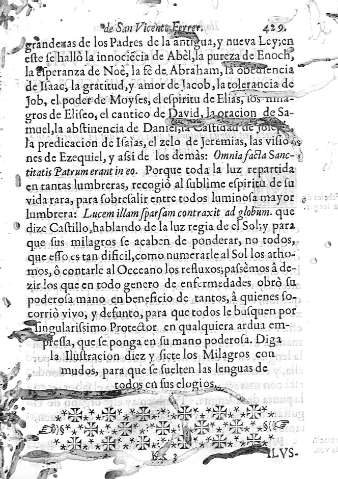 de San Vicente Ferrer. 429.
grandezas de los Padres de la antigua, y nueva Ley; en
este se hallò la innocẽcia de Abèl, la pureza de Enoch,
la esperanza de Noè, la fè de Abraham, la obediencia
de Isaac, la gratitud, y amor de Jacob, la tolerancia de
Job, el poder de Moyses, el espiritu de Elias, los mila-
gros de Eliseo, el cantico de David, la oracion de Sa-
muel, la abstinencia de Daniel, la Castidad de Joseph,
la predicacion de Isaias, el zelo de Jeremias, las visio-
nes de Ezequiel, y assi de los demàs: Omnia facta Sanc-
titatis Patrum erant in eo. Porque toda la luz repartida
en tantas lumbreras, recogiò al sublime espiritu de su
vida rara, para sobresalir entre todos luminosa mayor
lumbrera: Lucem illam sparsam contraxit ad globum. que
dize Castillo, hablando de la luz regia de el Sol; y para
que sus milagros se acaben de ponderar, no todos,
que esso es tan dificil, como numerarle al Sol los atho-
mos, ò contarle al Occeano los refluxos; passèmos à de-
zir los que en todo genero de enfermedades obrò su
poderosa mano en beneficio de tantos, à quienes so-
corriò vivo, y defunto, para que todos le busquen por
singularissimo Protector en qualquiera ardua em-
pressa, que se ponga en su mano poderosa. Diga
la Ilustracion diez y siete los Milagros con
mudos, para que se suelten las lenguas de
todos en sus elogios.
ILUS-